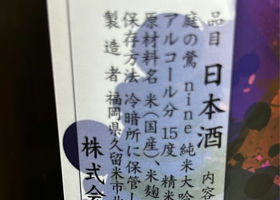 品目 日本酒 内容
庭の鶯 nine 純米大吟
アルコール分 15度 精米
原材料名 米(国産)、米麹
保存方法 冷暗所に保管し
製造者 福岡県久留米市北
株式会